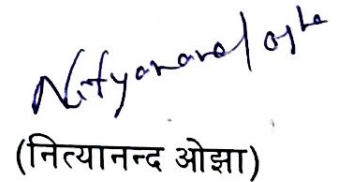 Nityanand Ojha
(नित्यानन्द ओझा)